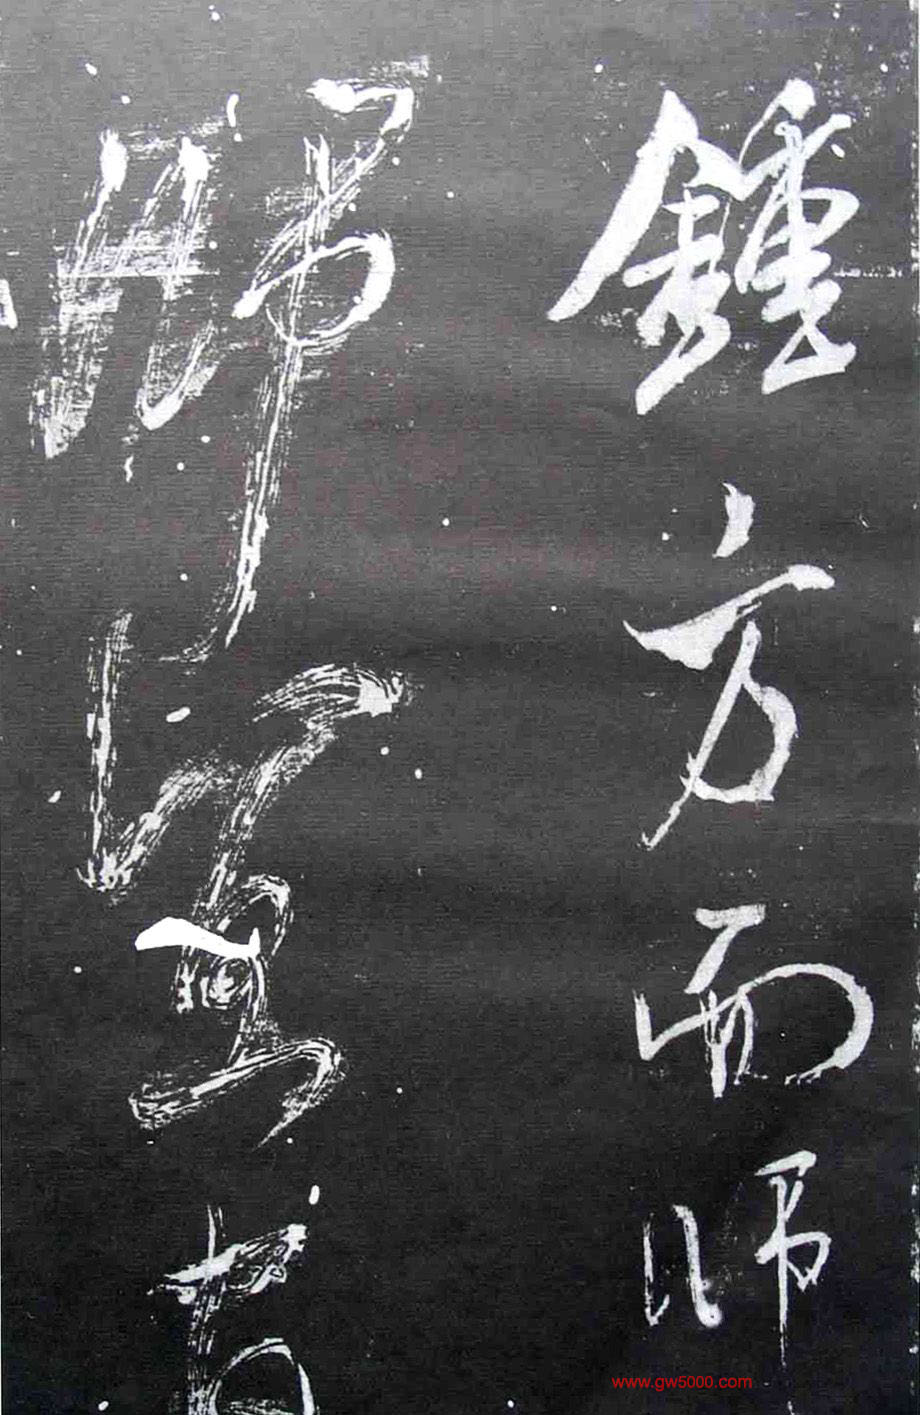 鍾方而師
師宜官
www.gw5000.com